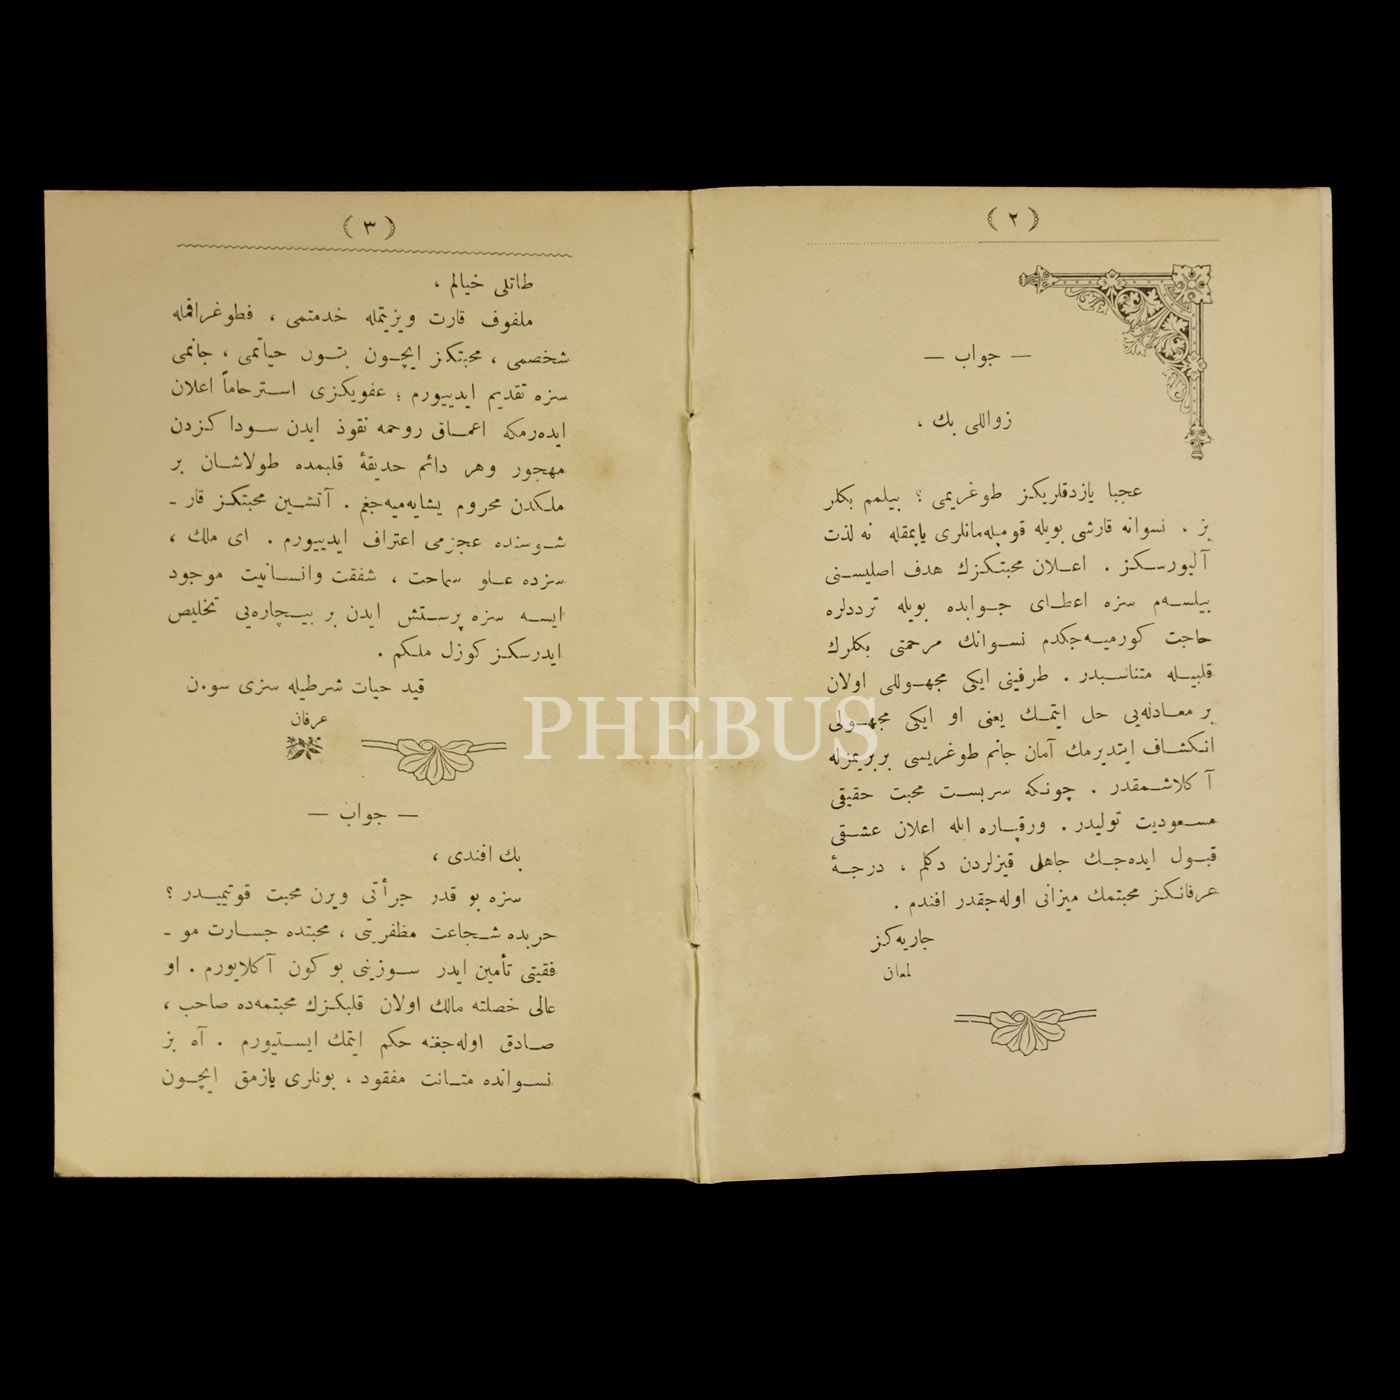 ( ٢ )
— جواب —
زواللی بك ،
عجبا یازدقلریكز طوغریمی ؟ بیلمم بكلر
بز ، نسوانه قارشی بویله قومپله‌مانلری یاپمقله نه لذت
آلیورسكز . اعلان محبتكزك هدف اصلیسنی
بیلسه‌م سزه اعطای جوابده بویله ترددلره
حاجت كورمیه‌جكدم نسوانك مرحمتی بكلرك
قلبیله متناسبدر . طرفینی ایكی مجهوللی اولان
بر معادله‌یی حل ایتمك یعنی او ایكی مجهولی
انكشاف ایتدیرمك آمان جانم طوغریسی بربریمزله
آكلاشمقدر . چونكه سربست محبت حقیقی
مسعودیت تولیدر . ورقپاره ایله اعلان عشقی
قبول ایده‌جك جاهل قیزلردن دكلم ، درجهٔ
عرفانكز محبتمك میزانی اوله‌جقدر افندم .
جاریه‌كز
لمعان
( ٣ )
طاتلی خیالم ،
ملفوف قارت ویزیتمله خدمتمی ، فطوغرافمله
شخصمی ، محبتكز ایچون بتون حیاتمی ، جانمی
سزه تقدیم ایدییورم ؛ عفویكزی استرحاماً اعلان
ایده‌رمكه اعماق روحمه نقوذ ایدن سودا كزدن
مهجور وهر دائم حدیقهٔ قلبمده طولاشان بر
ملكدن محروم یشایه‌میه‌جغم . آتشین محبتكز قار ـ
شوسنده عجزمی اعتراف ایدییورم . ای ملك ،
سزده علو سماحت ، شفقت وانسانیت موجود
ایسه سزه پرستش ایدن بر بیچاره‌یی تخلیص
ایدرسكز كوزل ملكم .
قید حیات شرطیله سزی سون
عرفان
— جواب —
بك افندی ،
سزه بو قدر جرأتی ویرن محبت قوتیمیدر ؟
حربده شجاعت مظفریتی ، محبتده جسارت مو ـ
فقیتی تأمین ایدر سوزینی بوكون آكلایورم . او
عالی خصلته مالك اولان قلبكزك محبتمه‌ده صاحب ،
صادق اوله‌جغنه حكم ایتمك ایستیورم . آه بز
نسوانده متانت مفقود ، بونلری یازمق ایچون
PHEBUS